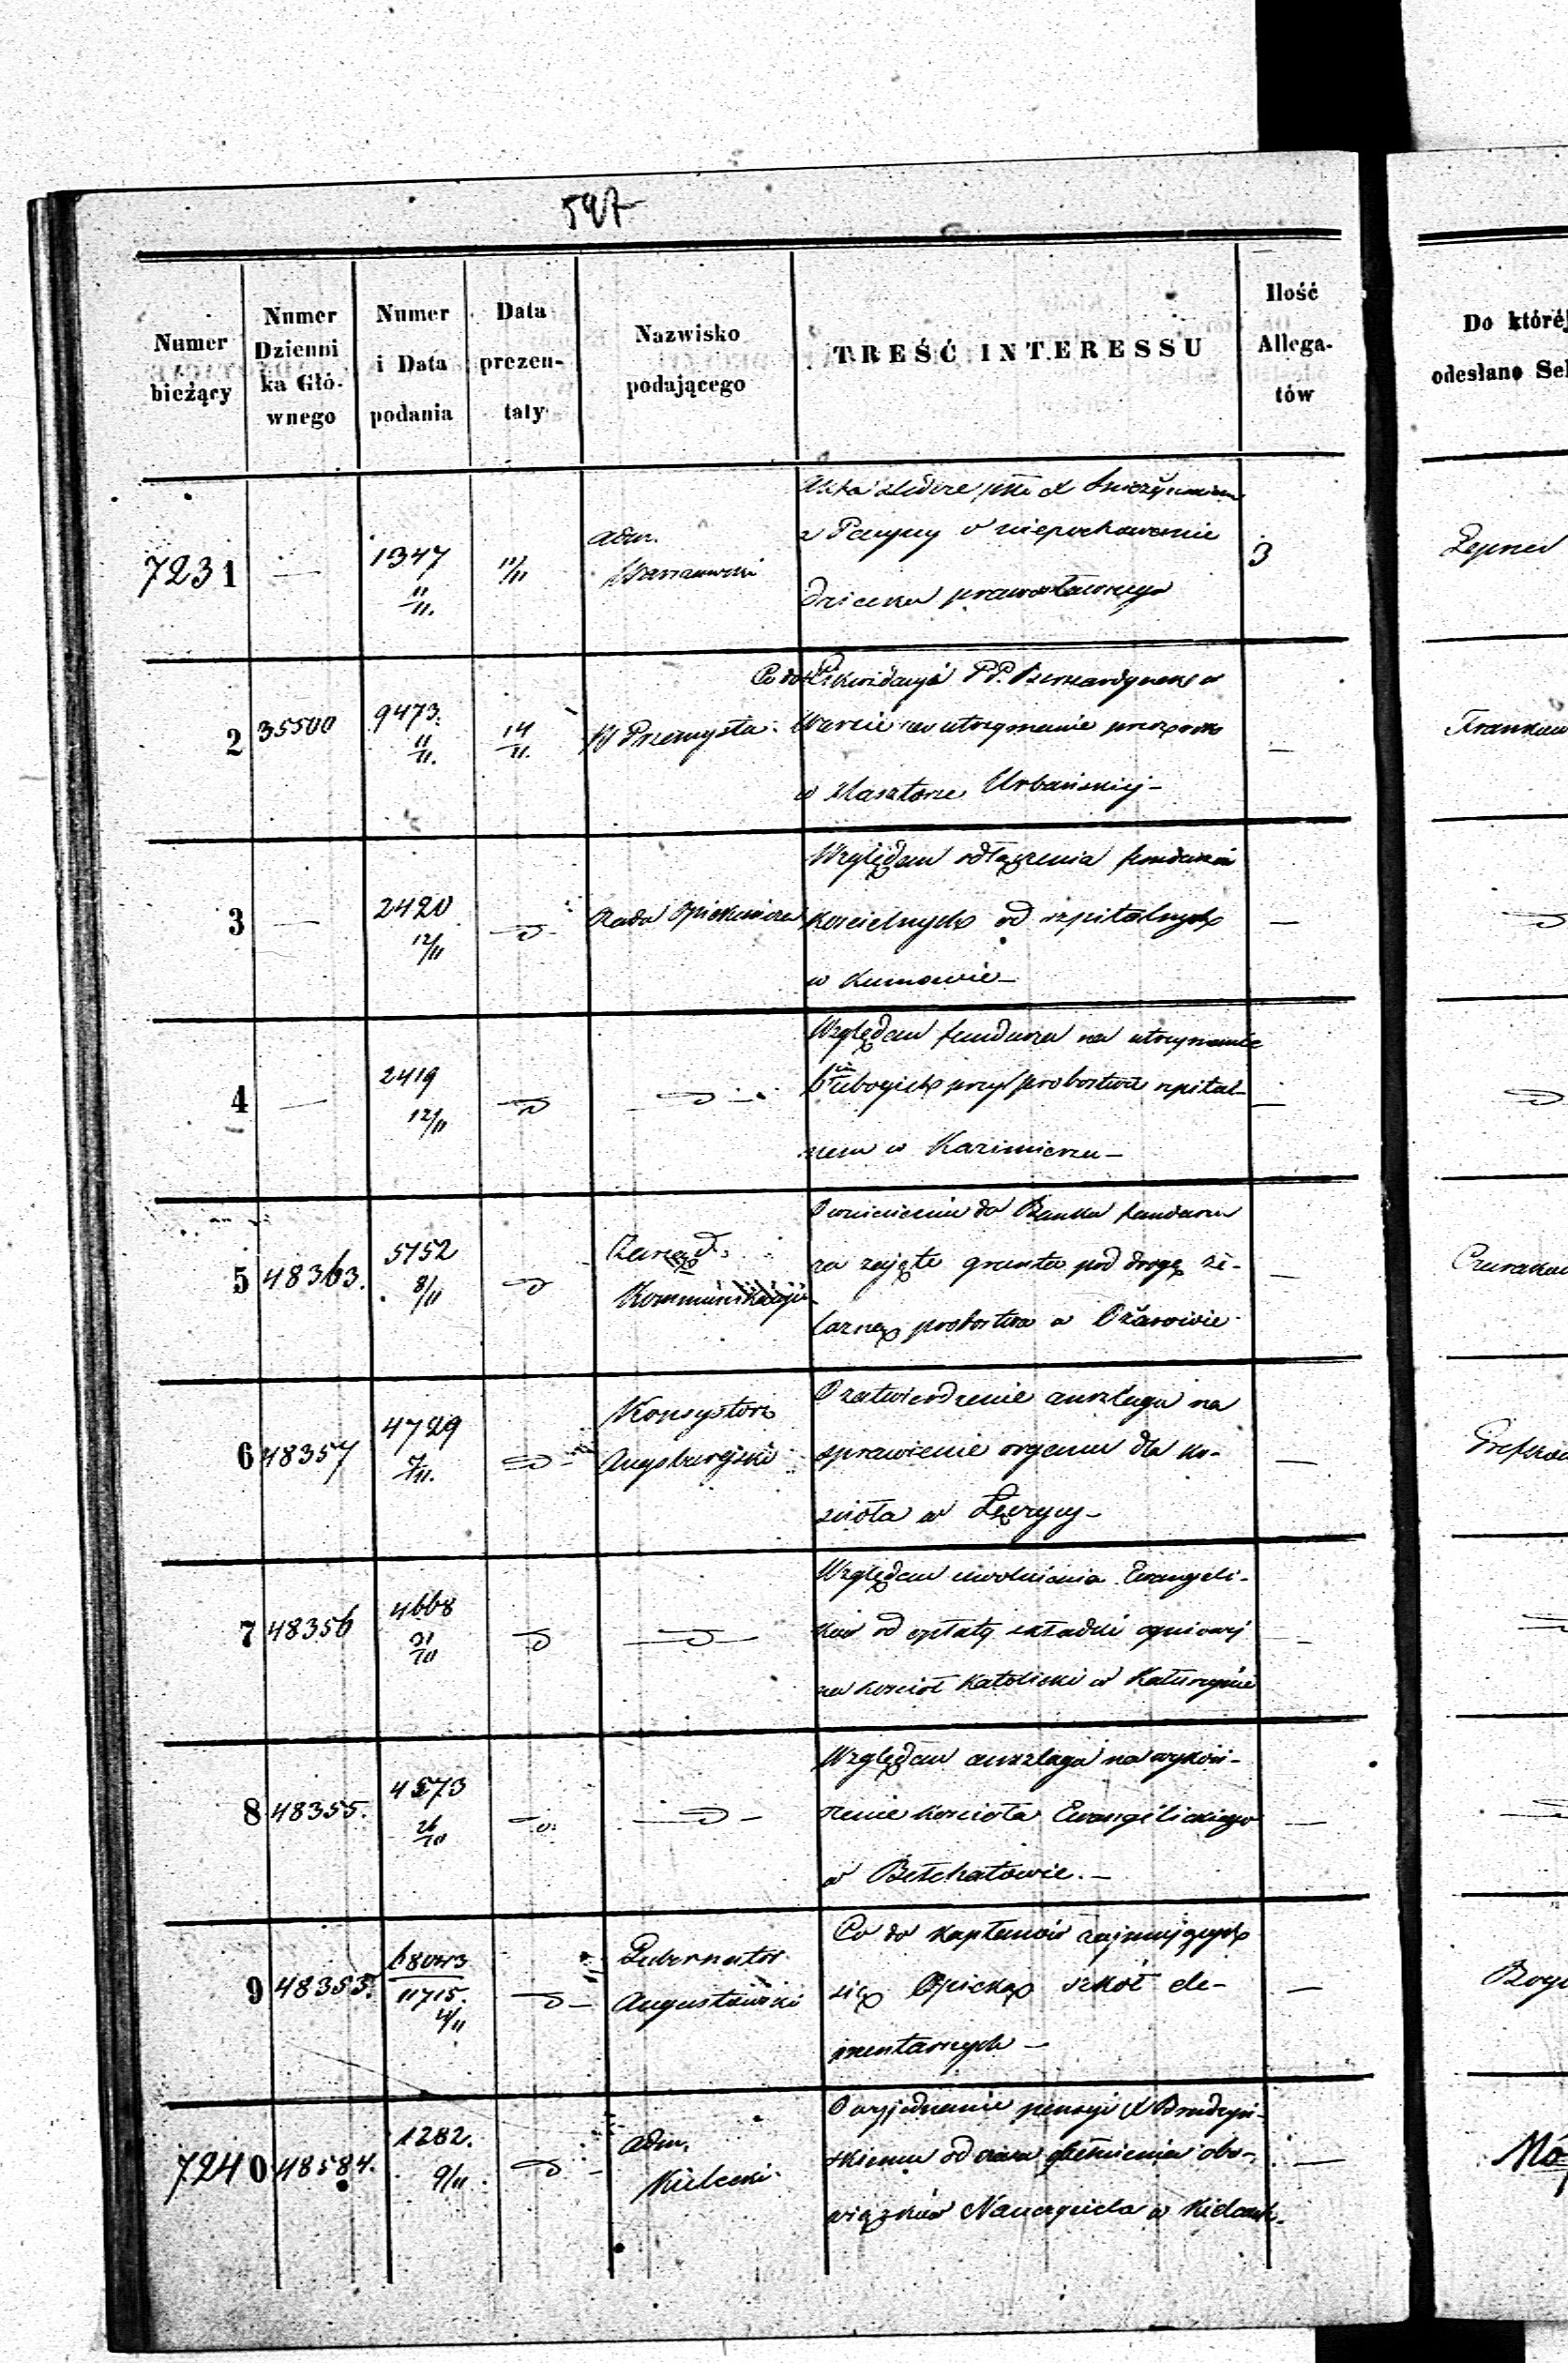 597
Numer bieżący
Numer Dzienni ka Głó- wnego
Numer i Data podania
Data prezen- taty
Nazwisko podającego
TREŚĆ INTERESSU
Ilość Allega- tów
Do któréj
odesłano
7231 — 1347 11/11. 11/11 adm. 3
z Pcyny o niepochowanie
dziecka prawosławnego
2 35500 9473. 11/11. 14/11. W Przemysłu. —
Co do Likwidacyi PP. Bernardynek w
Warcie na utrzymanie
w klasztorze Urbańskiej —
3 — 2420 12/11 Rada Opiekuńcza —
Względem odłączenia funduszu
kościelnych od szpitalnych
w Kumowie —
4 — 2419 12/11 —
Względem funduszu na utrzymanie
ubogich przy probostwie szpital-
nem w Kazimierzu —
5 48363. 5752 8/11 Zarząd Kommunikacyi —
O wniesienie do Banku funduszu
za zajęte grunta pod drogę że-
lazną probostwa w Ożarowie
6 48357 4729 7/11. Konsystorz Augsburgski —
O zatwierdzenie anszlagu na
sprawienie organu dla ko-
ścioła w Łęczycy —
7 48356 4668 31/10 —
Względem uwolnienia Ewangeli-
ków od opłaty składki ogniowej
na kościół Katolicki w
8 48355. 4573 26/10 —
Względem anszlagu na wykoń-
czenie kościoła Ewangelickiego
w Bełchatowie. —
9 48353. 68043 11715. 4/11 Gubernator Augustowski —
Co do kapłanów zajmujących
się Opieką szkół ele-
mentarnych —
7240 48584. 1282. 9/11 adm. Kielecki —
O wyjednanie pensyi X
od czasu pełnienia obo-
wiązków Nauczyciela w Kielcach.